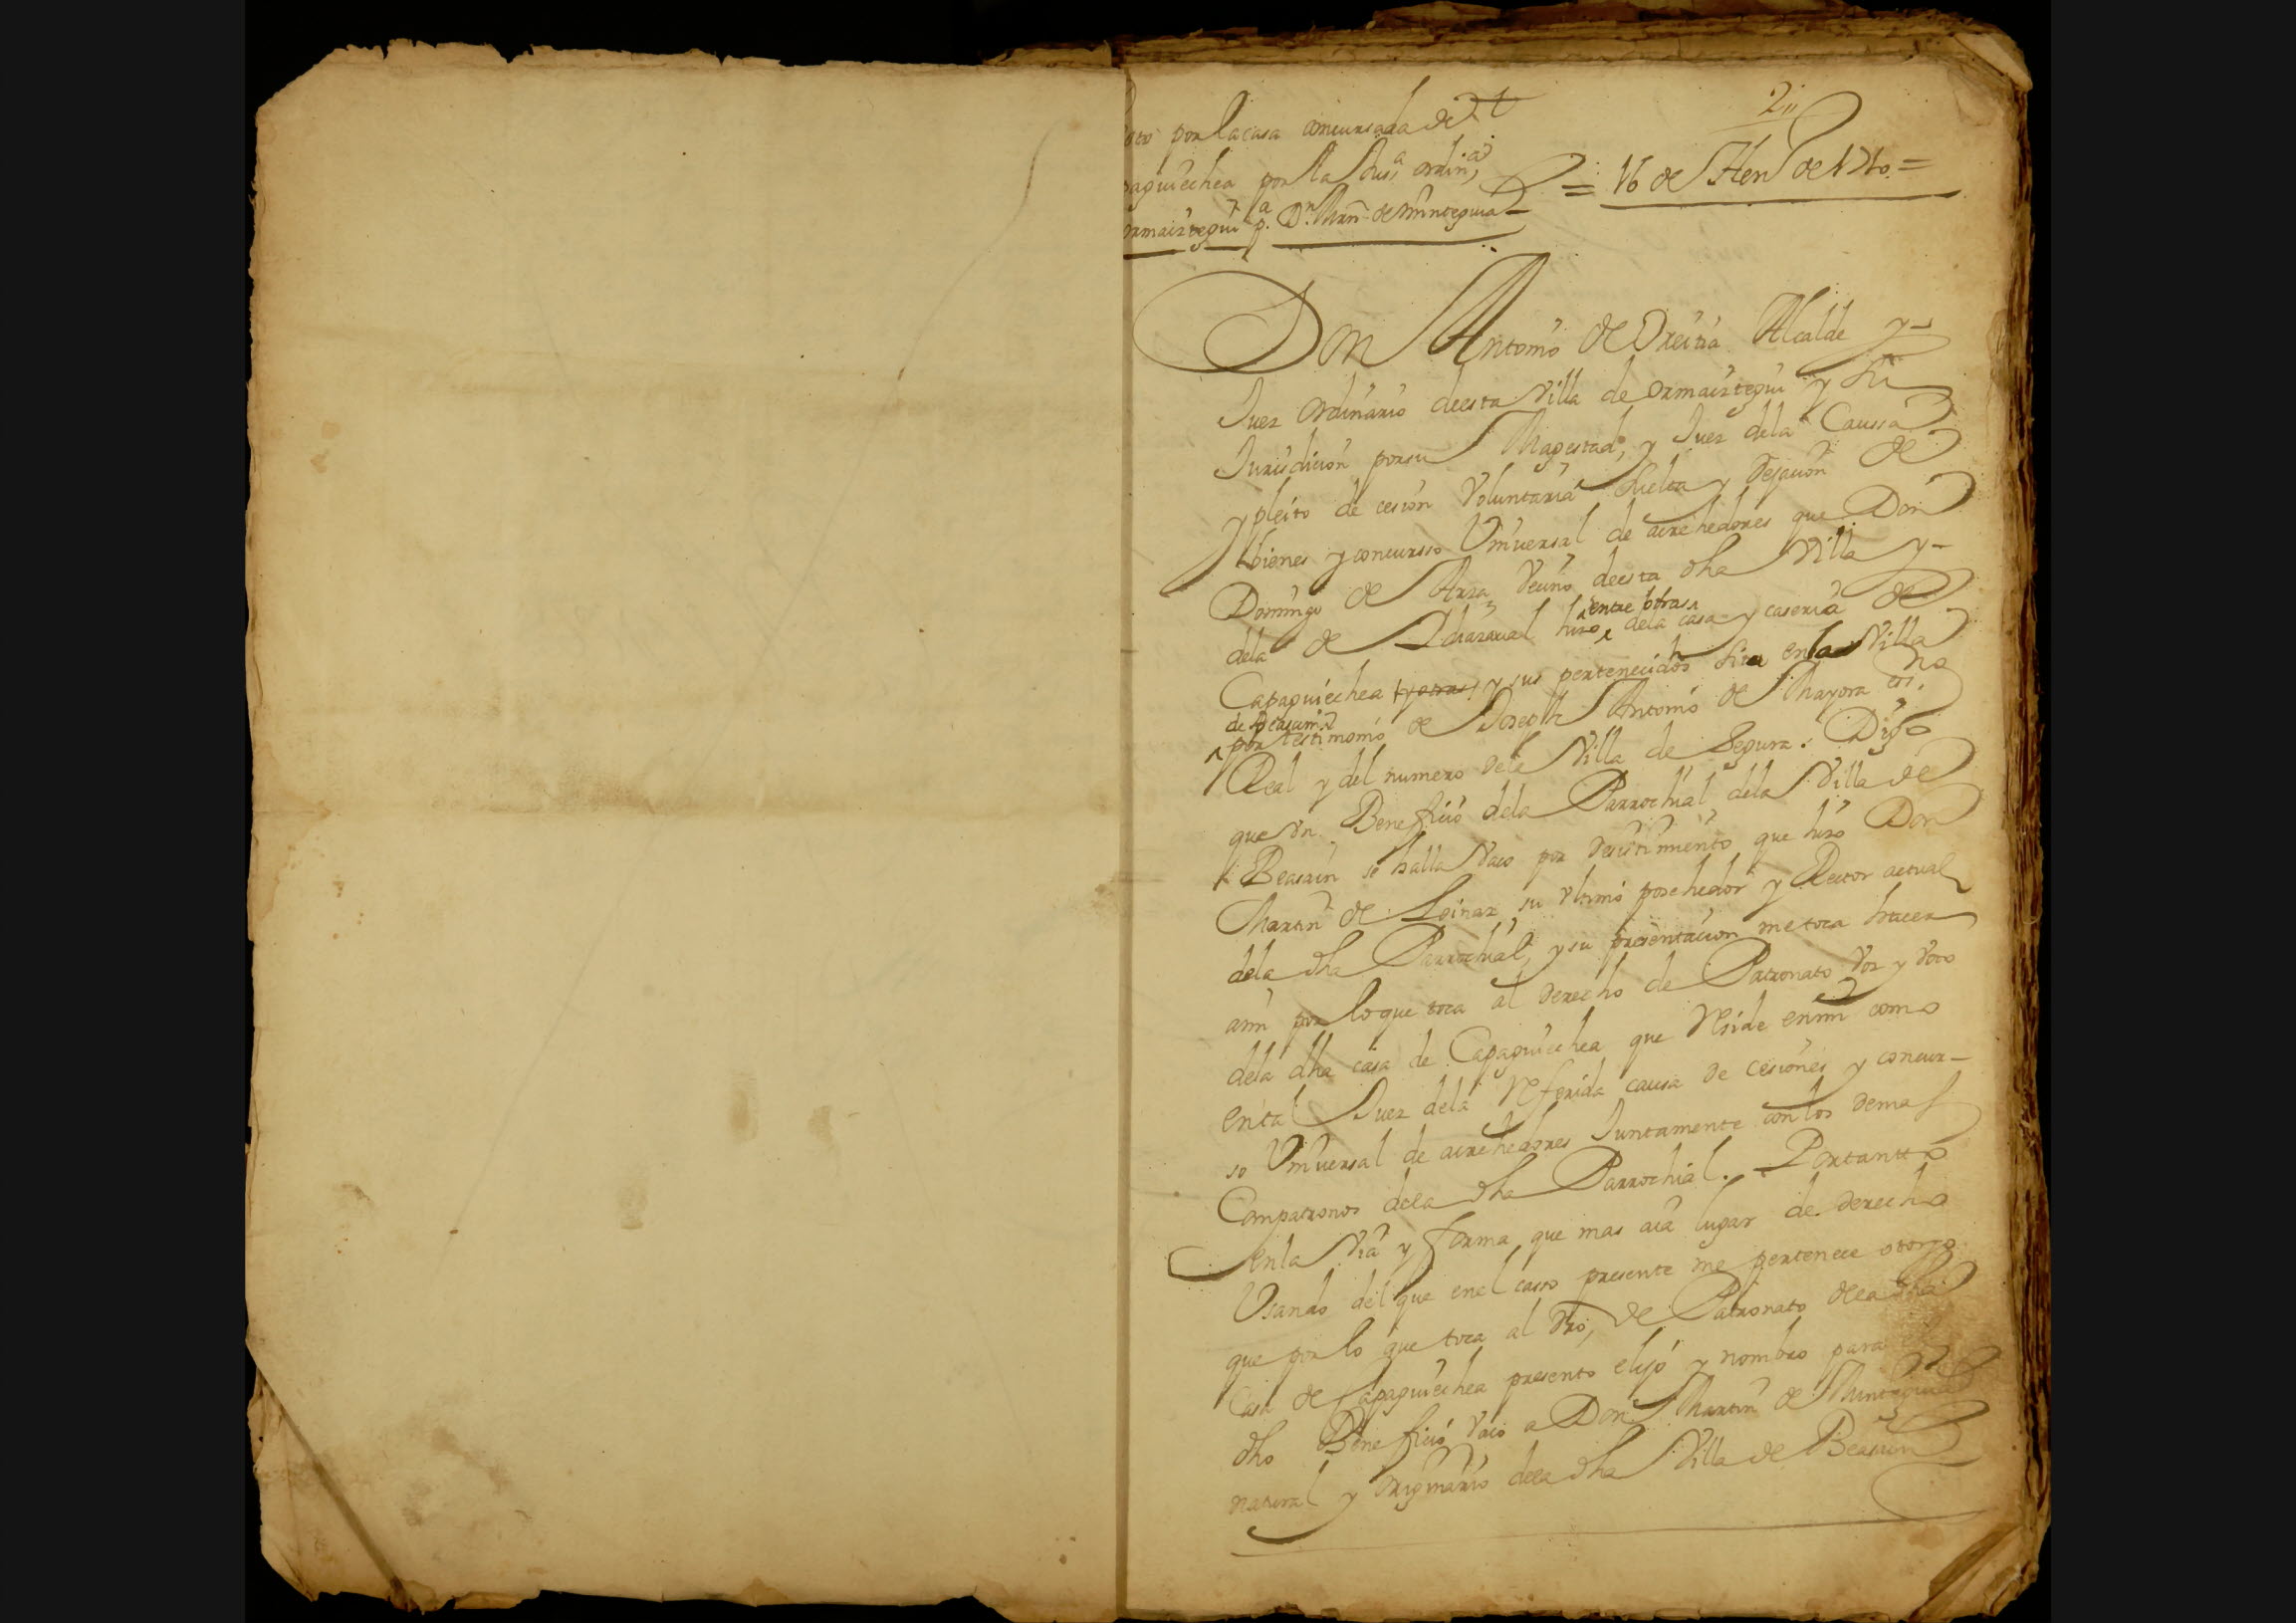 2„
oto por la casa concursada de
paguiechea por la Jusª ordinª
ormaiztegui pª Dn Mrñ de Munteguia
= 16 de Hen de 1710 =
Don Antonio de Oreitia Alcalde y
Juez Ordinario deesta Villa de Ormaiztegui y su
Jurisdicion por su Magestad, y Juez dela Caussa
y pleito de cesion Voluntaria suelta y Dejacion de
bienes y concursso Vniuersal de acrehedores que Don
Domingo de Arza Vecino deesta dha Villa y
dela de hizo entre otras dela casa y caseria de
Capaguiechea (y otras) y sus pertenecidos sita enla Villa
de Beasain
por testimonio de Joseph Antonio de Mayora essno
Real y del numero dela Villa de Segura. Digo
que Vn Beneficio dela Parrochial dela Villa de
Beasain se halla Vaco por desistimiento que hizo Don
Martin de Loinaz su Vltimo posehedor y Rector actual
dela dha Parrochial, y su presentacion me toca hacer
ami por loque toca al derecho de Patronato Voz y Voto
dela dha casa de Capaguiechea que Reside enmi como
en tal Juez dela Referida causa de cesiones y concur-
so Vniuersal de acrehedores Juntamente con los demas
Compatronos dela dha Parrochial. Portantto
enla Via y forma que mas aia lugar de derecho
Vsando del que enel casso presente me pertenece otorgo
que por lo que toca al dro, de Patronato dela dha
Casa de Capaguiechea presento elijo y nombro para el
dho Beneficio Vaco a Don Martin de Munteguia
natural y Originario dela dha Villa de Beasain